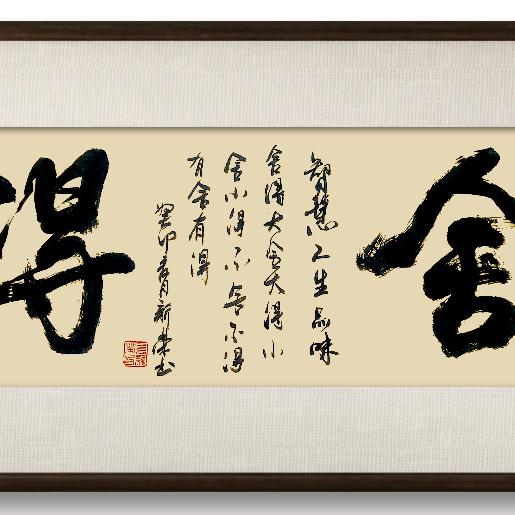 舍
智慧人生品味
舍得大舍大得小
舍小得不舍不得
有舍有得
癸卯春月新来书
得